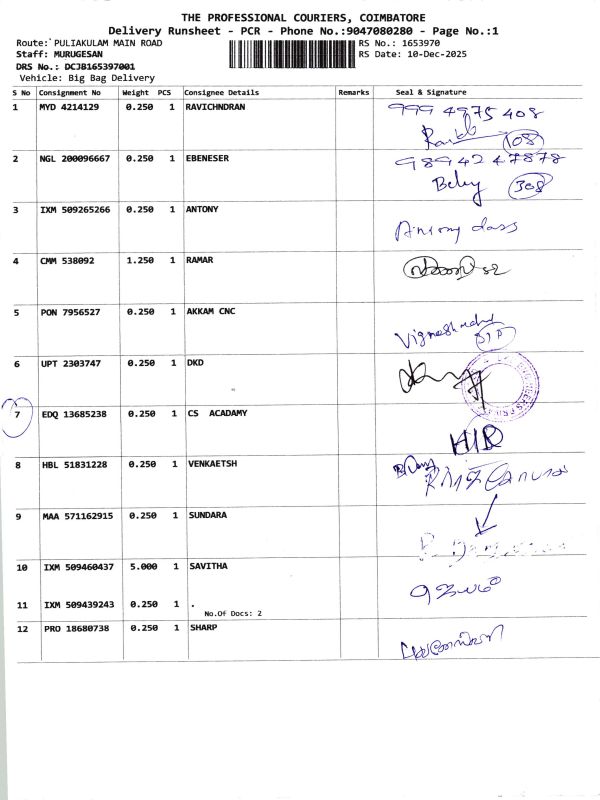 THE PROFESSIONAL COURIERS, COIMBATORE
Delivery Runsheet - PCR - Phone No.:9047080280 - Page No.:1
Route: PULIAKULAM MAIN ROAD
RS No.: 1653970
Staff: MURUGESAN
RS Date: 10-Dec-2025
DRS No.: DCJB165397001
Vehicle: Big Bag Delivery
S No Consignment No Weight PCS Consignee Details Remarks Seal & Signature
1 MYD 4214129 0.250 1 RAVICHNDRAN 999 4975 408
108
2 NGL 200096667 0.250 1 EBENESER 9894247878
308
3 IXM 509265266 0.250 1 ANTONY Antony dass
4 CMM 538092 1.250 1 RAMAR
5 PON 7956527 0.250 1 AKKAM CNC
6 UPT 2303747 0.250 1 DKD
7 EDQ 13685238 0.250 1 CS ACADAMY
8 HBL 51831228 0.250 1 VENKAETSH
9 MAA 571162915 0.250 1 SUNDARA
10 IXM 509460437 5.000 1 SAVITHA
11 IXM 509439243 0.250 1 .
No.Of Docs: 2
12 PRO 18680738 0.250 1 SHARP